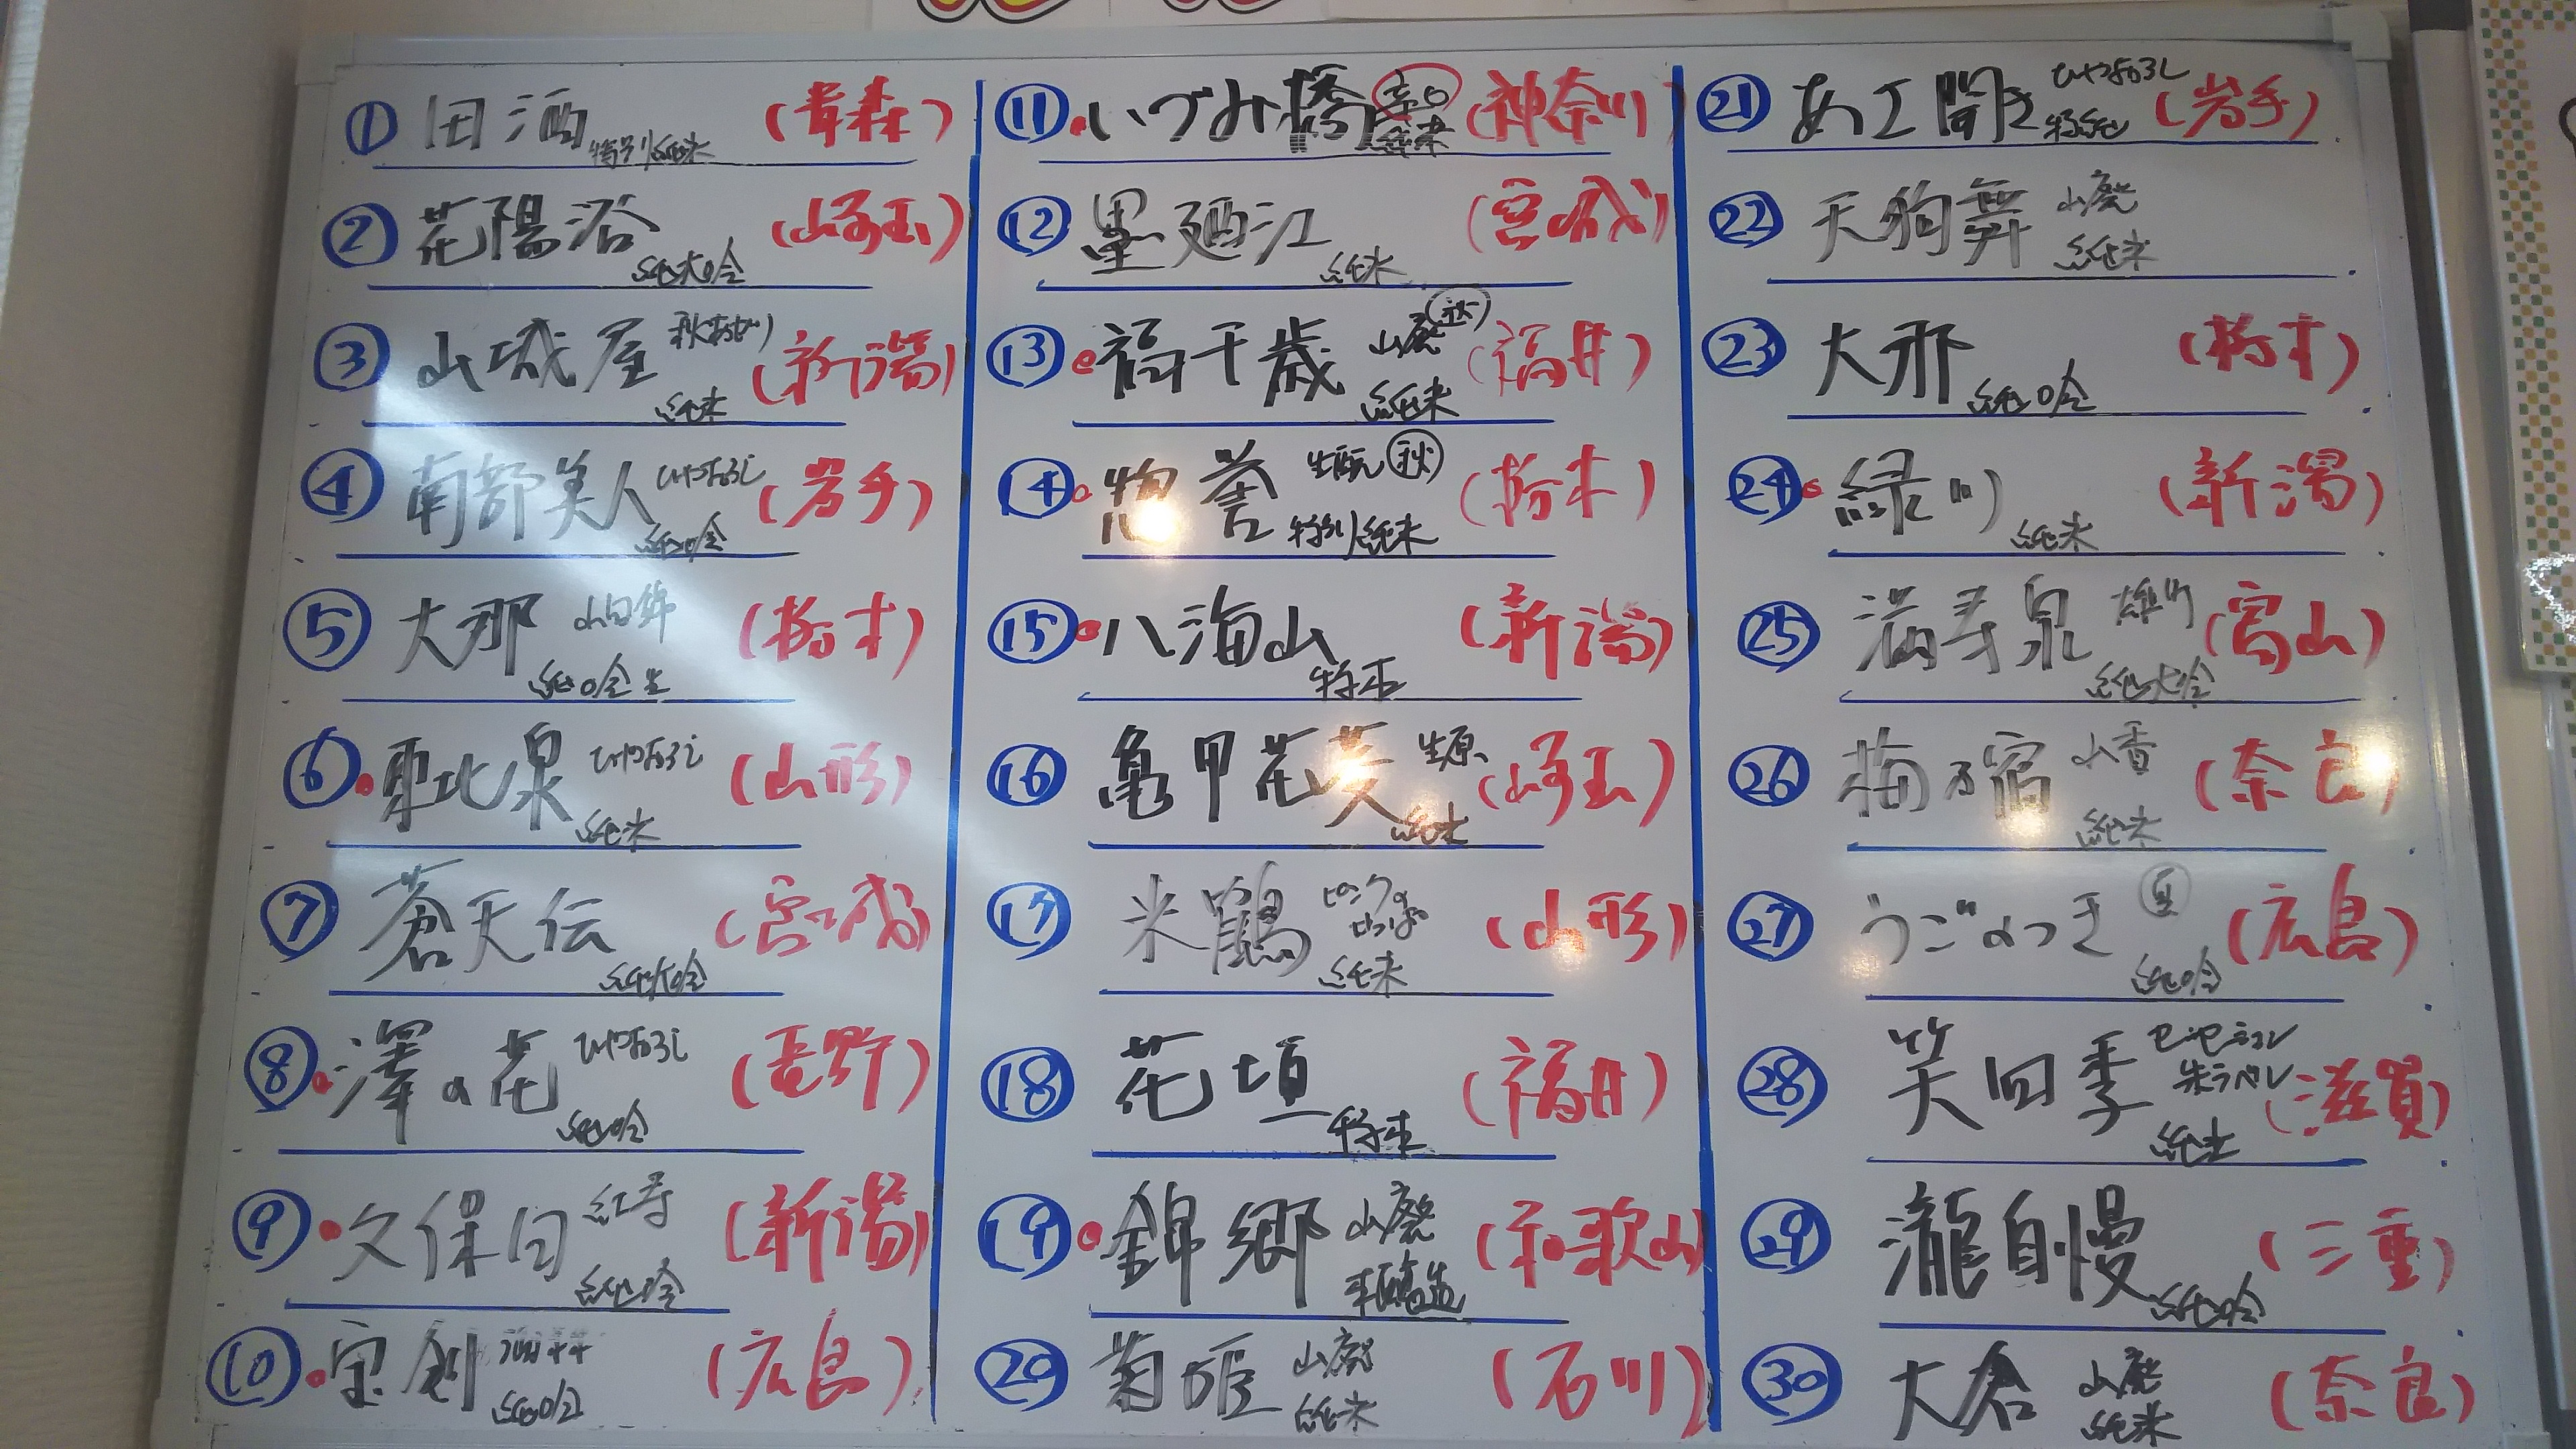 ① 田酒 特別純米 (青森)
② 花陽浴 純大吟 (埼玉)
③ 山城屋 秋あがり 純米 (新潟)
④ 南部美人 ひやおろし 純吟 (岩手)
⑤ 大那 山田錦 純吟生 (栃木)
⑥ 東北泉 ひやおろし 純米 (山形)
⑦ 蒼天伝 純大吟 (宮城)
⑧ 澤の花 ひやおろし 純吟 (長野)
⑨ 久保田 紅寿 純吟 (新潟)
⑩ 宝剣 純吟 (広島)
⑪ いづみ橋 辛口 純米 (神奈川)
⑫ 墨廼江 純米 (宮城)
⑬ 福千歳 山廃 秋 純米 (福井)
⑭ 惣誉 生酛 秋 特別純米 (栃木)
⑮ 八海山 特本 (新潟)
⑯ 亀甲花菱 生原 純米 (埼玉)
⑰ 米鶴 ピンクのかっぱ 純米 (山形)
⑱ 花垣 特本 (福井)
⑲ 錦郷 山廃 本醸造 (和歌山)
⑳ 菊姫 山廃 純米 (石川)
㉑ あさ開き ひやおろし 特純 (岩手)
㉒ 天狗舞 山廃 純米
㉓ 大那 純吟 (栃木)
㉔ 緑川 純米 (新潟)
㉕ 満寿泉 雄町 純大吟 (富山)
㉖ 梅乃宿 山香 純米 (奈良)
㉗ うごのつき 夏 純吟 (広島)
㉘ 笑四季 センセーション 朱ラベル 純米 (滋賀)
㉙ 瀧自慢 純吟 (三重)
㉚ 大倉 山廃 純米 (奈良)